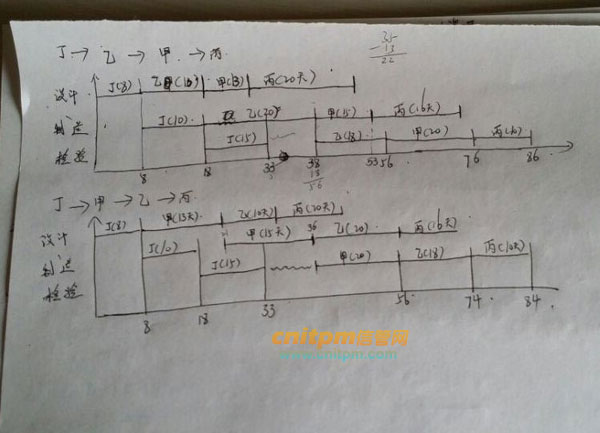 丁→乙→甲→丙
35
-13
22
设计 丁(8) 乙(10) 甲(13) 丙(20天)
制造 丁(10) 乙(20) 甲(15) 丙(16天)
检验 丁(15) 乙(18) 甲(20) 丙(10)
8 18 33 38 53 56 76 86
18
56
丁→甲→乙→丙
设计 丁(8) 甲(13天) 乙(10天) 丙(20天)
制造 丁(10) 甲(15天) 36 乙(20) 丙(16天)
检验 丁(15) 甲(20) 乙(18) 丙(10天)
8 18 33 56 74 84
cnitpm信管网
www.cnitpm.com